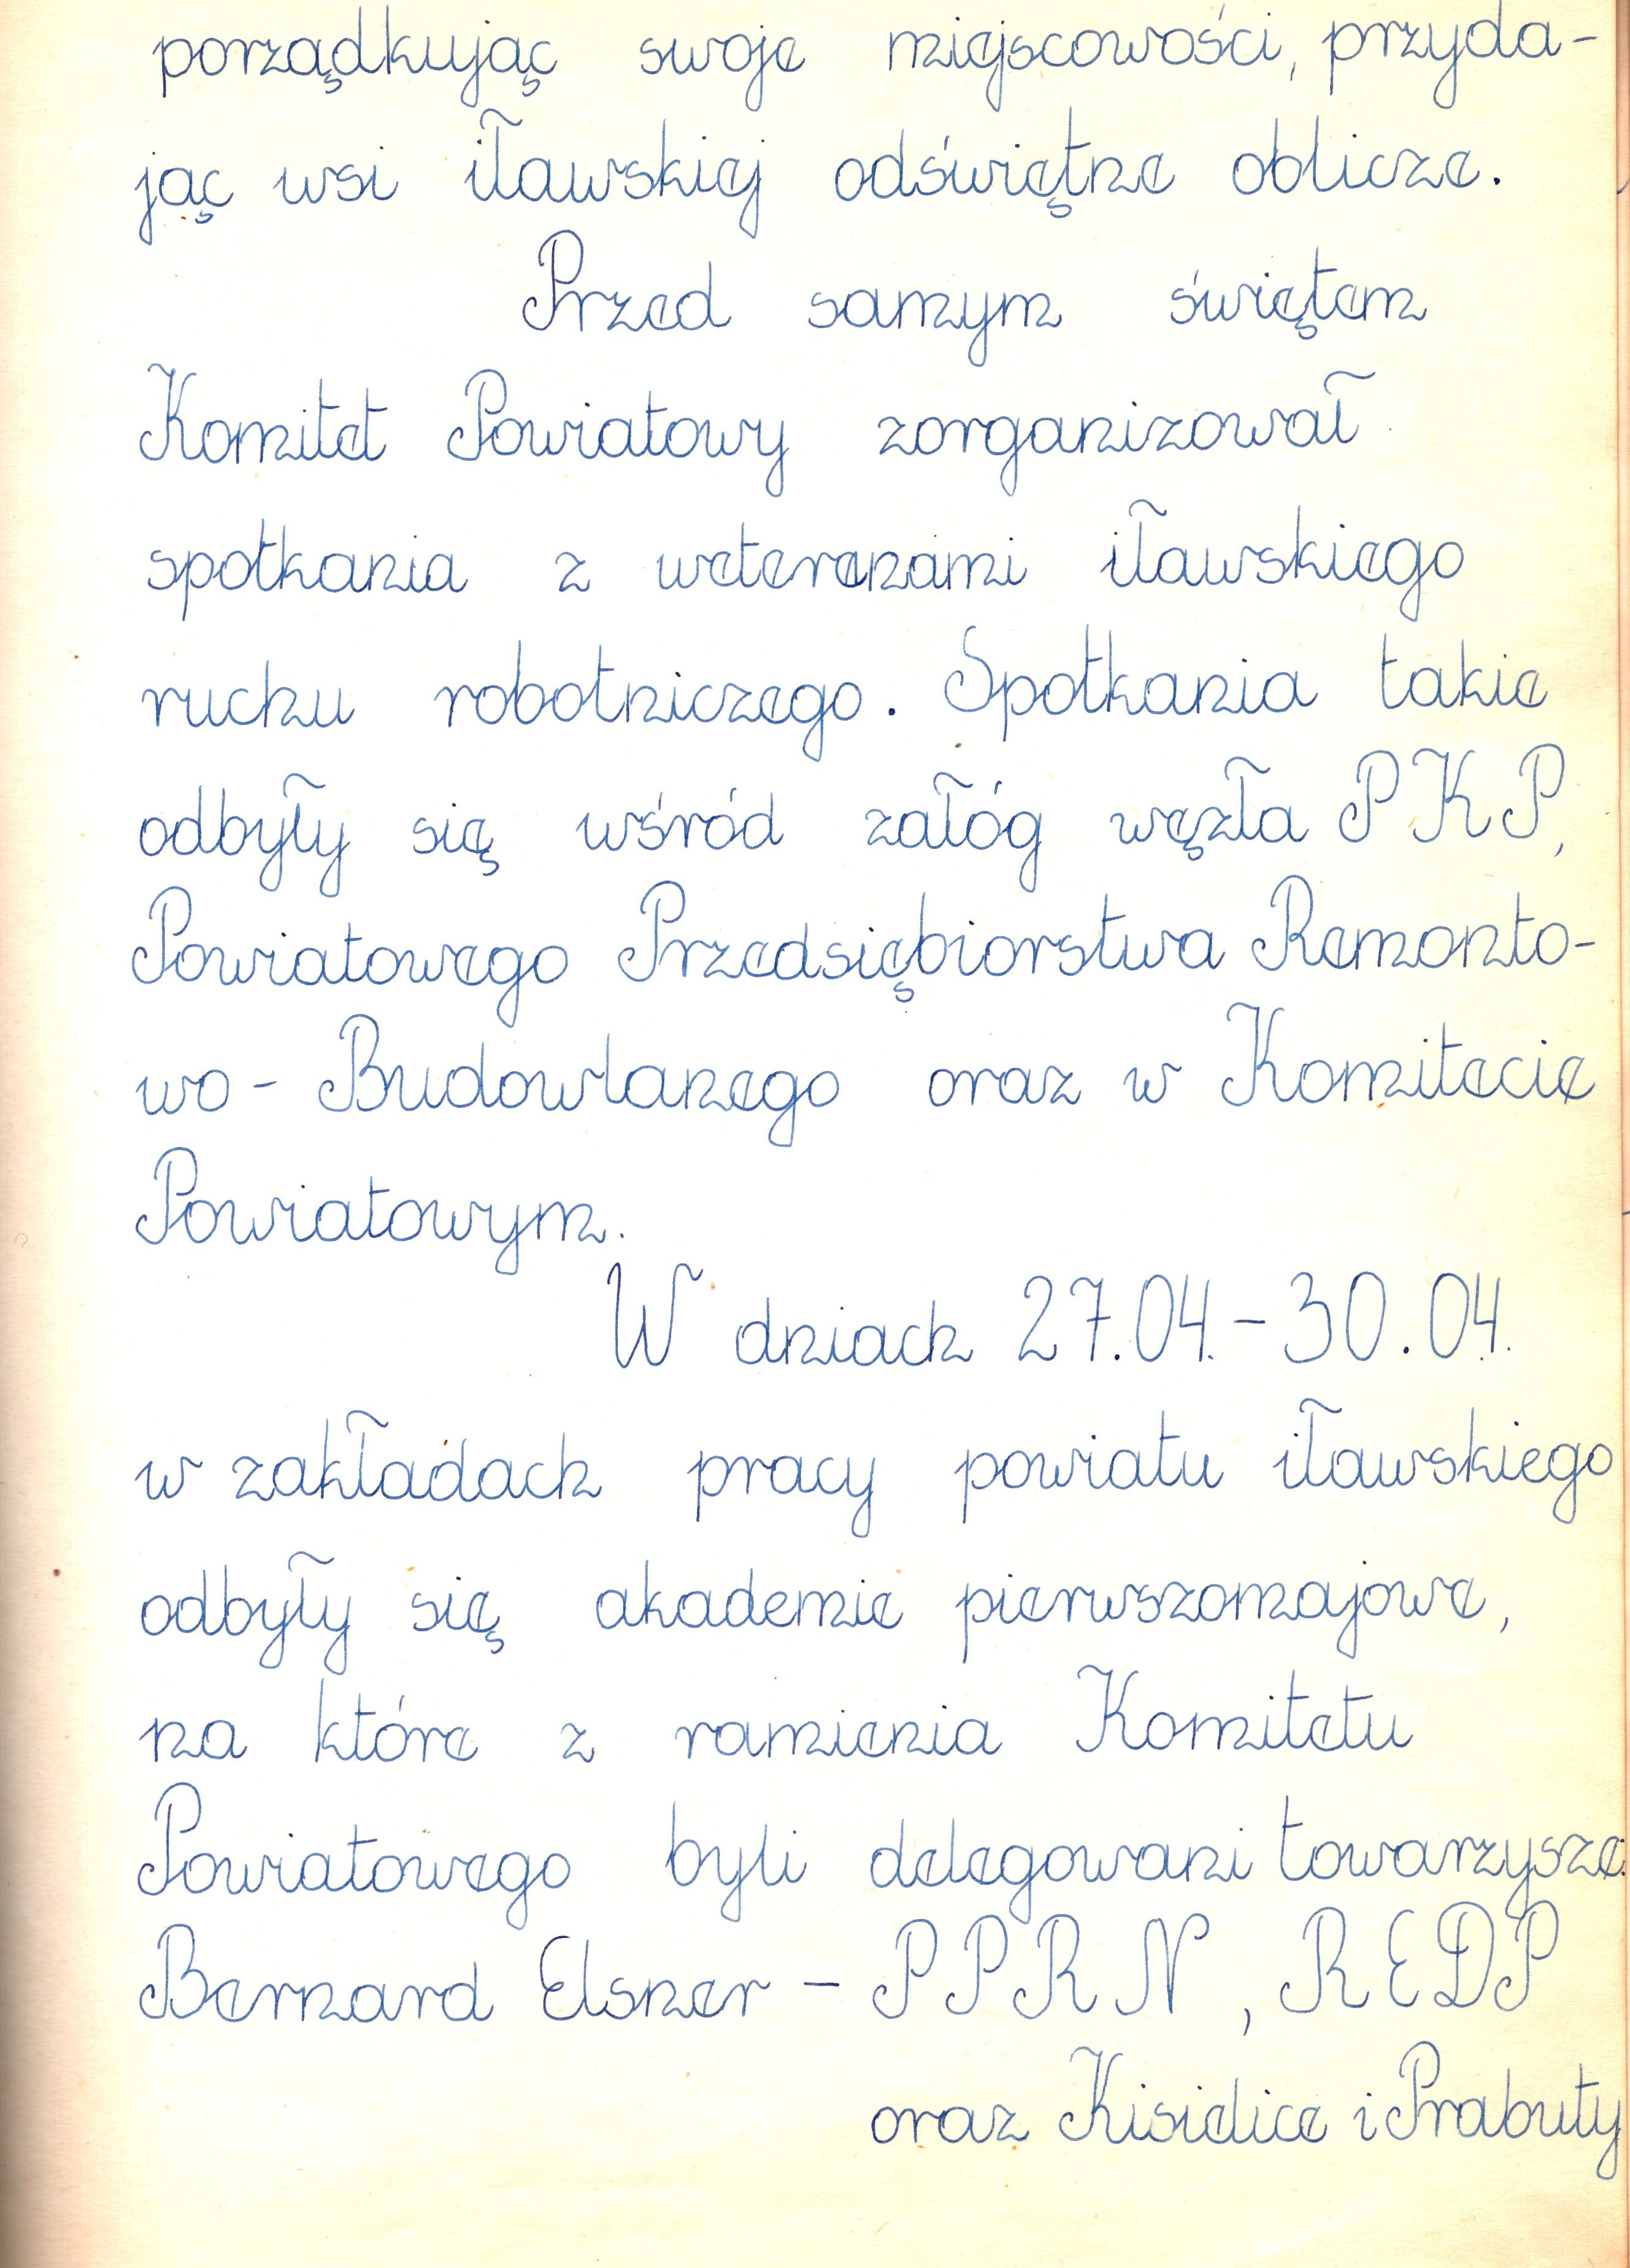 porządkując swoje miejscowości, przyda-
jąc wsi iławskiej odświętne oblicze.
Przed samym świętem
Komitet Powiatowy zorganizował
spotkania z weteranami iławskiego
ruchu robotniczego. Spotkania takie
odbyły się wśród załóg węzła PKP,
Powiatowego Przedsiębiorstwa Remonto-
wo - Budowlanego oraz w Komitecie
Powiatowym.
W dniach 27.04. - 30.04.
w zakładach pracy powiatu iławskiego
odbyły się akademie pierwszomajowe,
na które z ramienia Komitetu
Powiatowego byli delegowani towarzysze:
Bernard Elsner - PPRN, REDP
oraz Kisielice i Prabuty